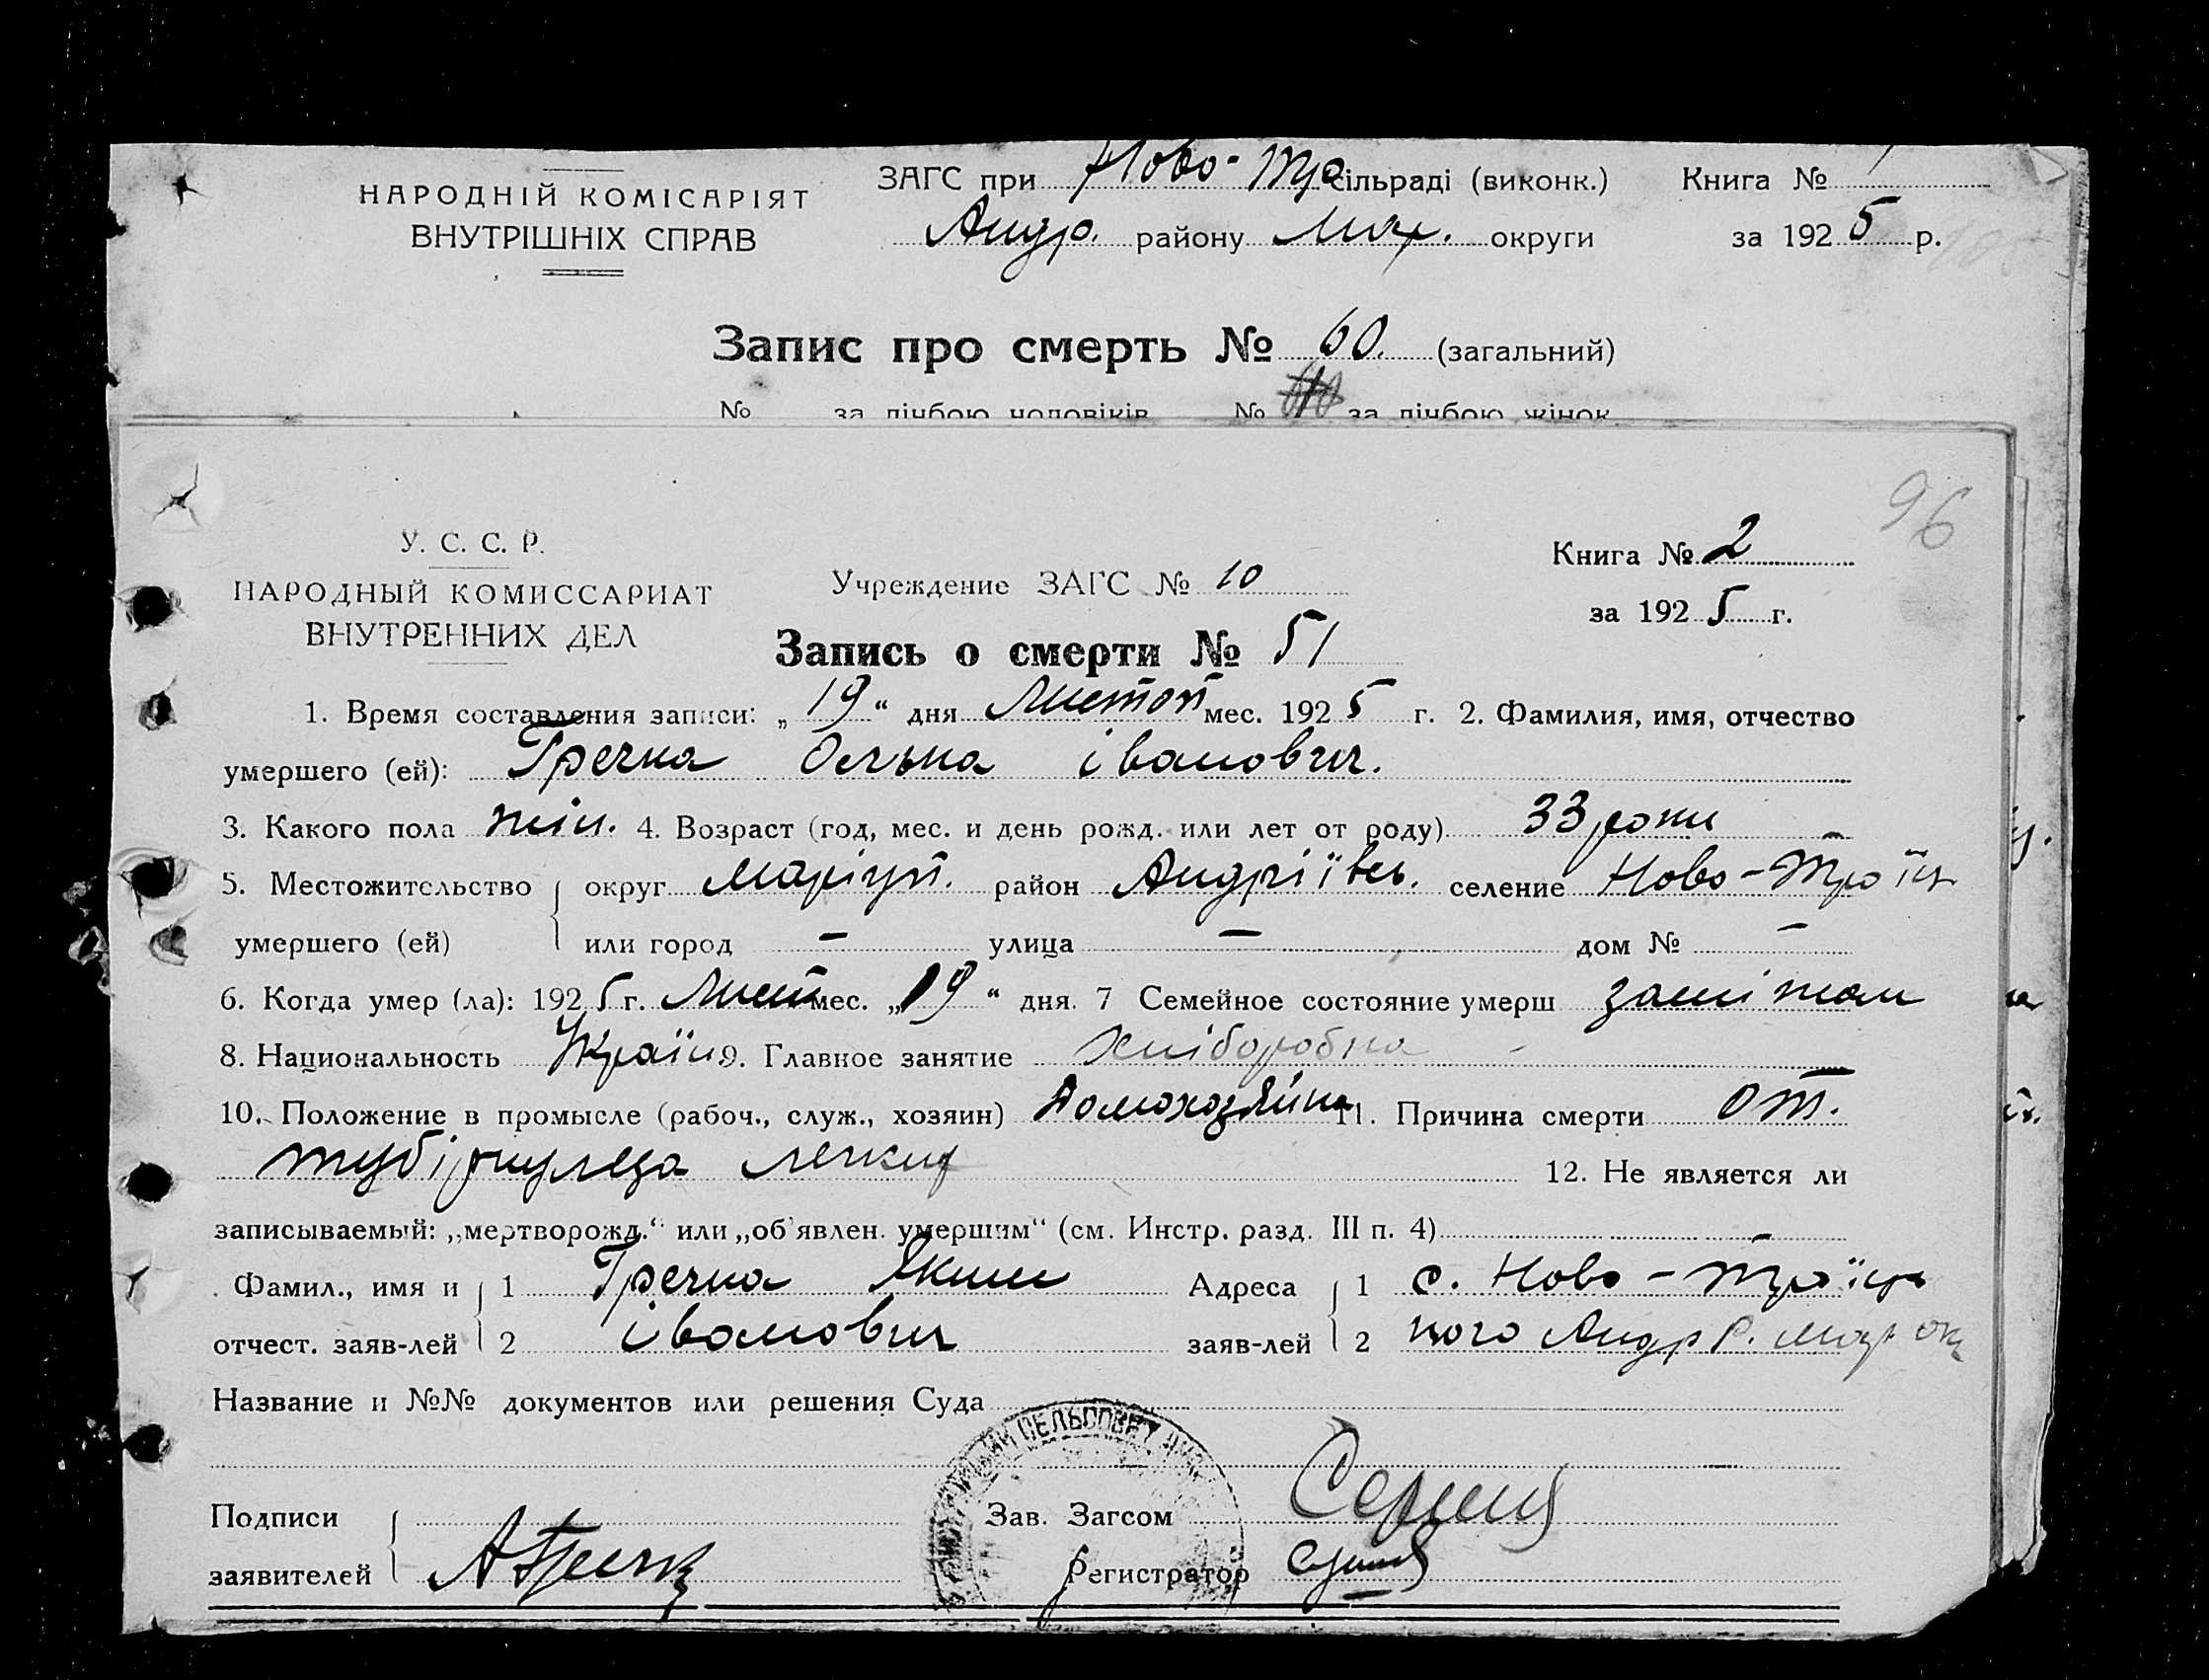 НАРОДНІЙ КОМІСАРІЯТ
ВНУТРІШНІХ СПРАВ
ЗАГС при Ново-Тро сільраді (виконк.) Книга №
Андр. району Мар. округи за 192 5 р.
Запис про смерть № 60. (загальний)
№ за лічбою чоловіків № за лічбою жінок
96
У. С. С. Р.
НАРОДНЫЙ КОМИССАРИАТ
ВНУТРЕННИХ ДЕЛ
Учреждение ЗАГС № 10
Книга № 2
за 192 5 г.
Запись о смерти № 51
1. Время составления записи: „ 19 “ дня Листоп мес. 192 5 г. 2. Фамилия, имя, отчество
умершего (ей): Гречка Олька іванович.
3. Какого пола жін. 4. Возраст (год, мес. и день рожд. или лет от роду) 33 роки
5. Местожительство округ Маріуп. район Андріївсь. селение Ново-Троїц
умершего (ей) или город – улица – дом № –
6. Когда умер (ла): 192 5 г. Лист мес. „ 19 “ дня. 7 Семейное состояние умерш заміжом
8. Национальность Україн 9. Главное занятие Хліборобка
10. Положение в промысле (рабоч., служ., хозяин) Домохозяйка 11. Причина смерти от.
тубіркулеза легких
12. Не является ли
записываемый: „мертворожд.“ или „об'явлен. умершим“ (см. Инстр. разд. III п. 4)
Фамил., имя и 1 Гречка Яким Адреса 1 с. Ново-Троїць
отчест. заяв-лей 2 іванович заяв-лей 2 кого Андр Р. Мар ок
Название и №№ документов или решения Суда
СЕЛЬСОВЕТ
Подписи Зав. Загсом
заявителей Регистратор